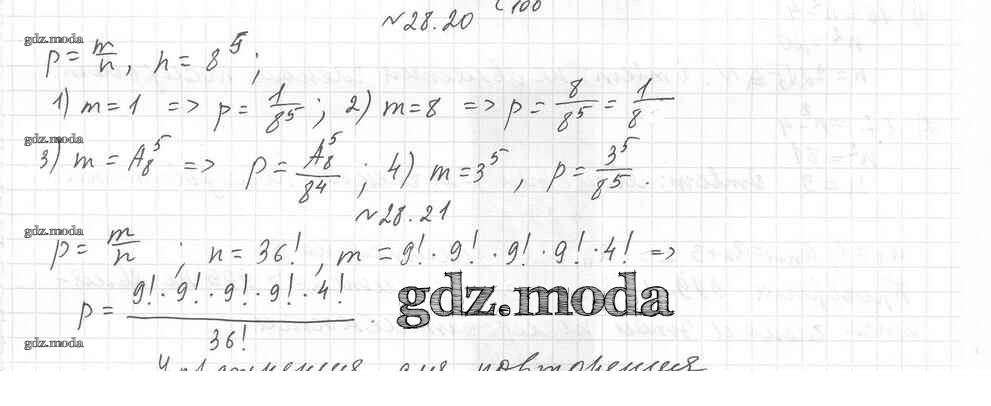 №28.20
gdz.moda
p = m/n, n = 8^5 ;
1) m = 1 => p = 1/8^5 ; 2) m = 8 => p = 8/8^5 = 1/8
gdz.moda
3) m = A_8^5 => p = A_8^5/8^4 ; 4) m = 3^5, p = 3^5/8^5.
№28.21
gdz.moda
p = m/n ; n = 36!, m = 9! · 9! · 9! · 9! · 4! =>
p = 9! · 9! · 9! · 9! · 4!/36! .
gdz.moda
gdz.moda
для повторения